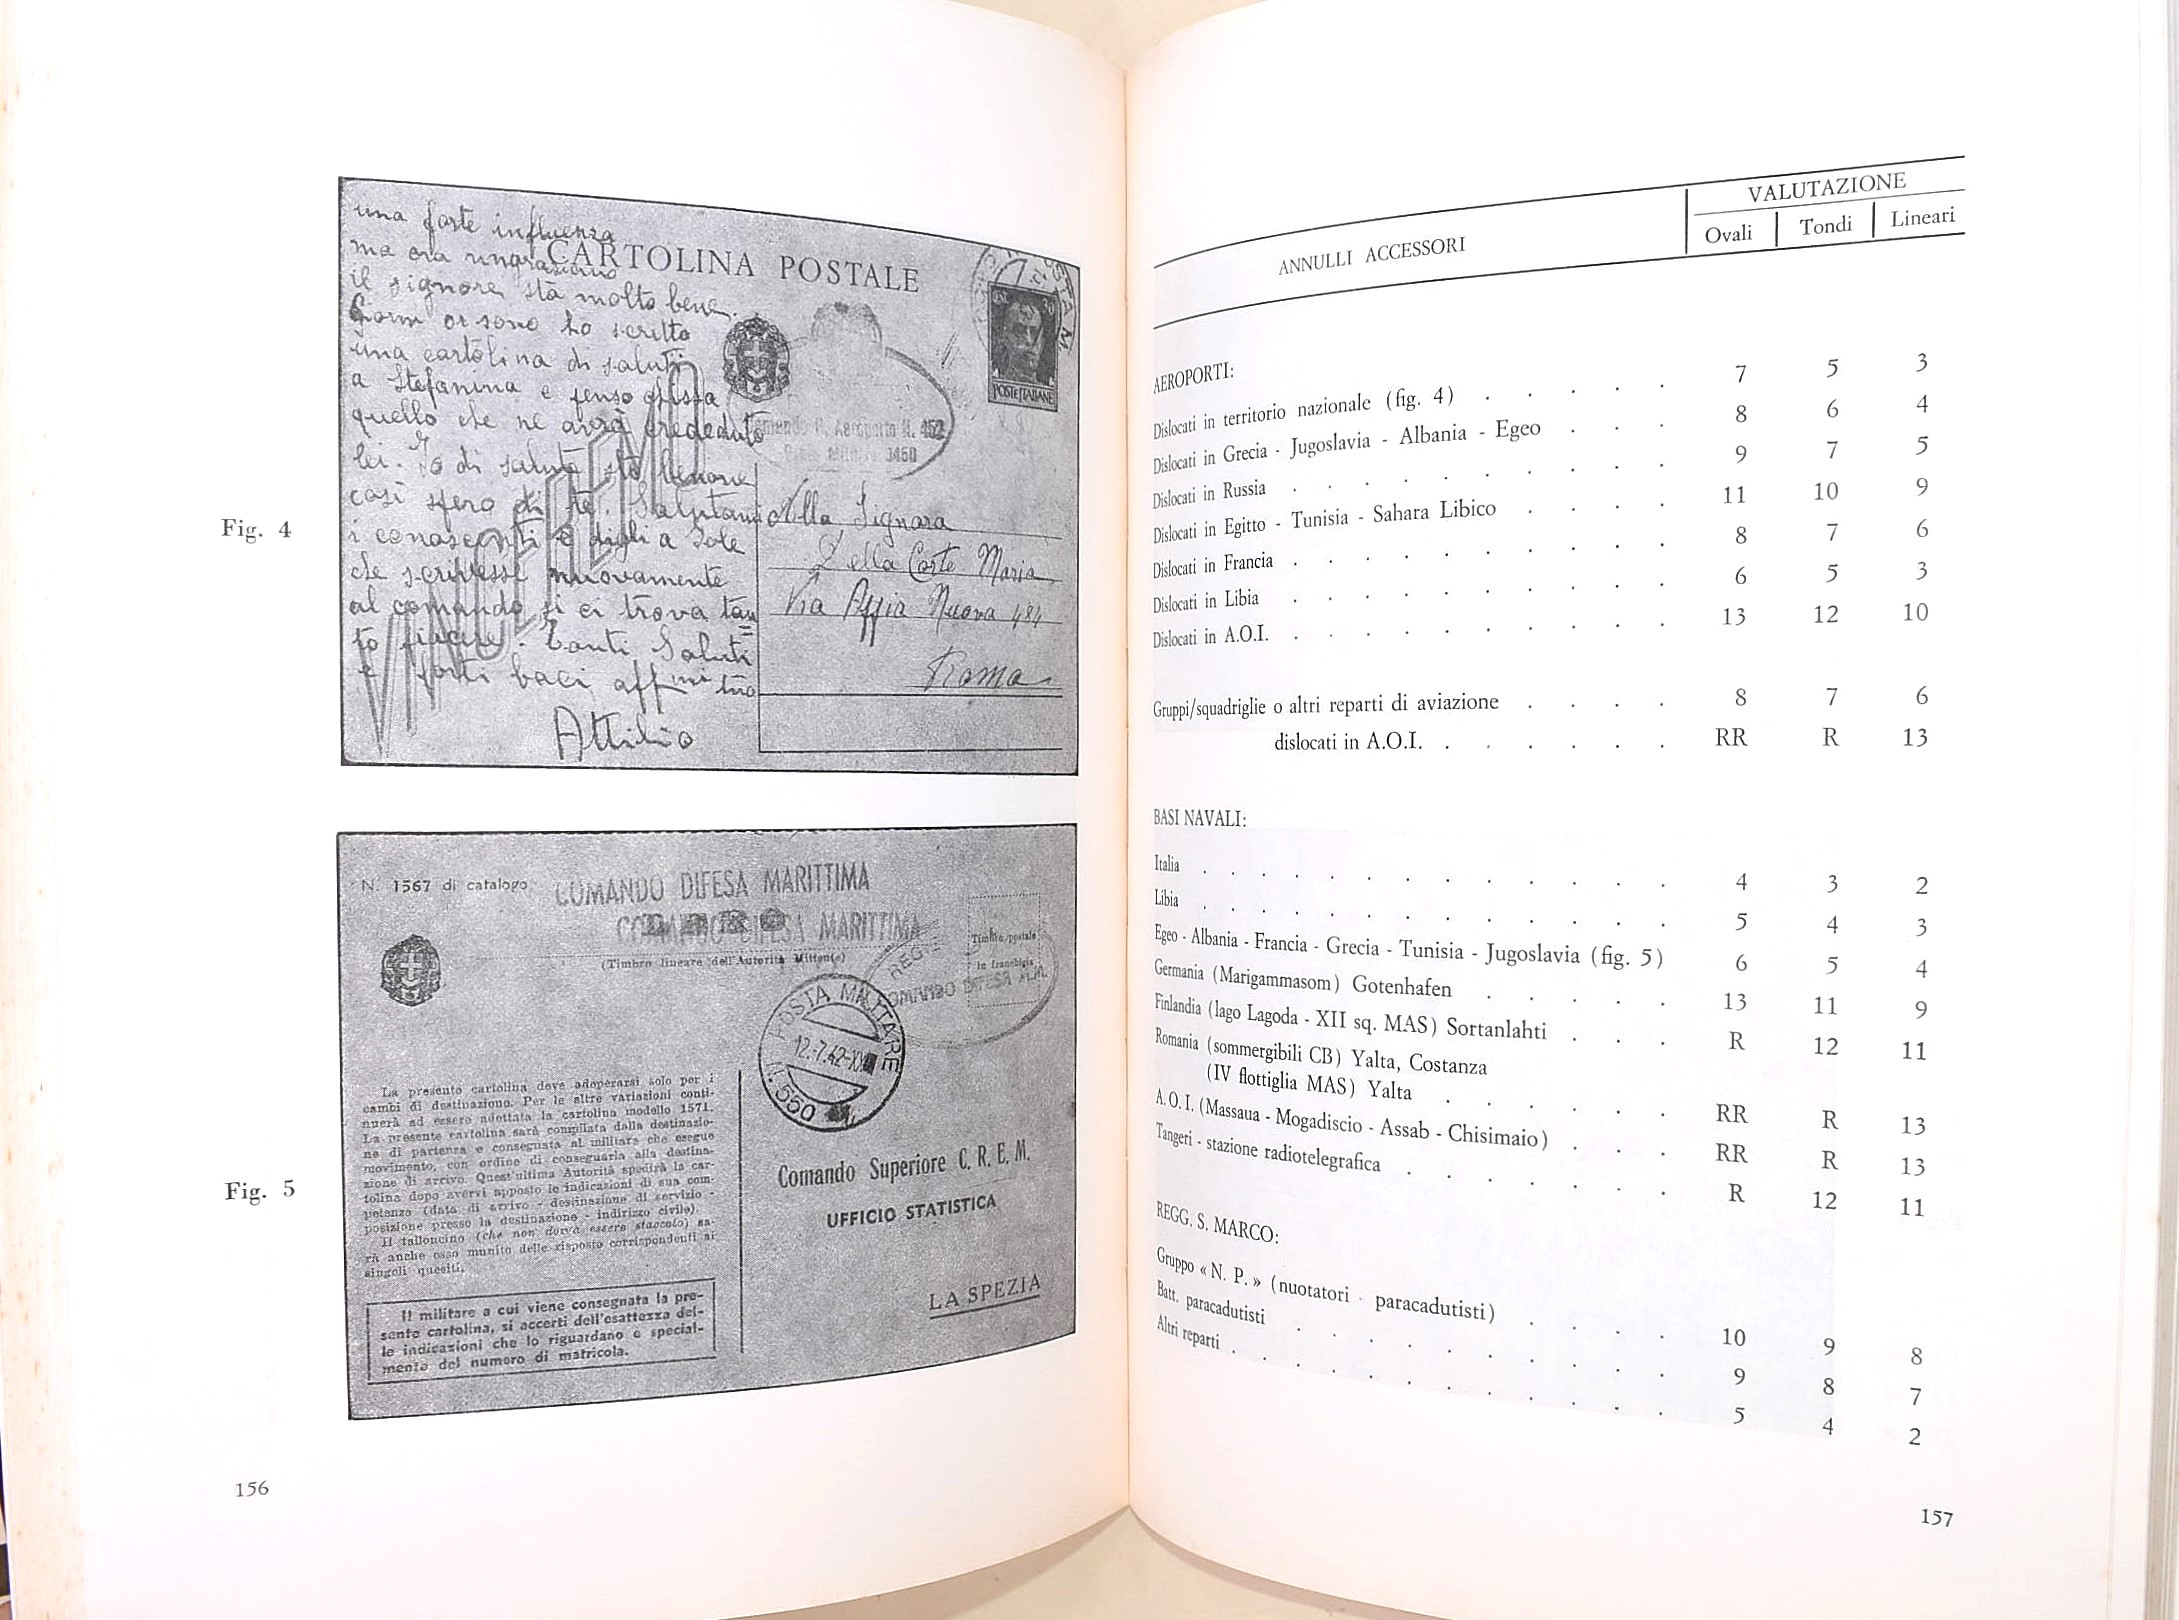 una forte influenza
ma ora ringraziamo
il signore sta molto bene.
or sono ho scritto
una cartolina di saluti
a Stefanina e penso
quello che ne avrà creduto
lei. Io di salute sto benone
così spero di te. Salutami
i conoscenti e digli a Sole
che scrivesse nuovamente
al comando si ci trova tan
to piacere. Tanti Saluti
e forti baci aff tuo
Attilio
CARTOLINA POSTALE
POSTE ITALIANE
Aeroporto N. 452
3450
VINCEREMO
Alla Signora
Della Corte Maria
Via Appia Nuova 484
Roma
Fig. 4
N. 1567 di catalogo
COMANDO DIFESA MARITTIMA
COMANDO DIFESA MARITTIMA
(Timbro lineare dell'Autorità Mittente)
Timbro postale
in franchigia
REGIA
COMANDO DIFESA M.M.
POSTA MILITARE
12.-7.42-XX
N. 550
La presente cartolina deve adoperarsi solo per i
cambi di destinazione. Per le altre variazioni conti-
nuerà ad essere adottata la cartolina modello 1571.
La presente cartolina sarà compilata dalla destinazio-
ne di partenza e consegnata al militare che esegue
movimento, con ordine di conseguarla alla destina-
zione di arrivo. Quest'ultima Autorità spedirà la car-
tolina dopo avervi apposto le indicazioni di sua com-
petenza (data di arrivo - destinazione di servizio -
posizione presso la destinazione - indirizzo civile).
Il talloncino (che non dovrà essere staccato) sa-
rà anche esso munito delle risposte corrispondenti ai
singoli quesiti.
Il militare a cui viene consegnata la pre-
sente cartolina, si accerti dell'esattezza del-
le indicazioni che lo riguardano e special-
mente del numero di matricola.
Comando Superiore C. R. E. M.
UFFICIO STATISTICA
LA SPEZIA
Fig. 5
156
ANNULLI ACCESSORI
VALUTAZIONE
Ovali Tondi Lineari
AEROPORTI:
Dislocati in territorio nazionale (fig. 4) . . . . . 7 5 3
Dislocati in Grecia - Jugoslavia - Albania - Egeo . . . 8 6 4
Dislocati in Russia . . . . . . . . . 9 7 5
Dislocati in Egitto - Tunisia - Sahara Libico . . . . 11 10 9
Dislocati in Francia . . . . . . . . . 8 7 6
Dislocati in Libia . . . . . . . . . 6 5 3
Dislocati in A.O.I. . . . . . . . . . 13 12 10
Gruppi/squadriglie o altri reparti di aviazione . . . . 8 7 6
dislocati in A.O.I. . . . . . . RR R 13
BASI NAVALI:
Italia . . . . . . . . . . . 4 3 2
Libia . . . . . . . . . . . 5 4 3
Egeo - Albania - Francia - Grecia - Tunisia - Jugoslavia (fig. 5) 6 5 4
Germania (Marigammasom) Gotenhafen . . . . . 13 11 9
Finlandia (lago Lagoda - XII sq. MAS) Sortanlahti . . . R 12 11
Romania (sommergibili CB) Yalta, Costanza
(IV flottiglia MAS) Yalta . . . . . . RR R 13
A.O.I. (Massaua - Mogadiscio - Assab - Chisimaio) . . . RR R 13
Tangeri - stazione radiotelegrafica . . . . . . . R 12 11
REGG. S. MARCO:
Gruppo « N. P. » (nuotatori - paracadutisti) . . . . 10 9 8
Batt. paracadutisti . . . . . . . . . 9 8 7
Altri reparti . . . . . . . . . . 5 4 2
157